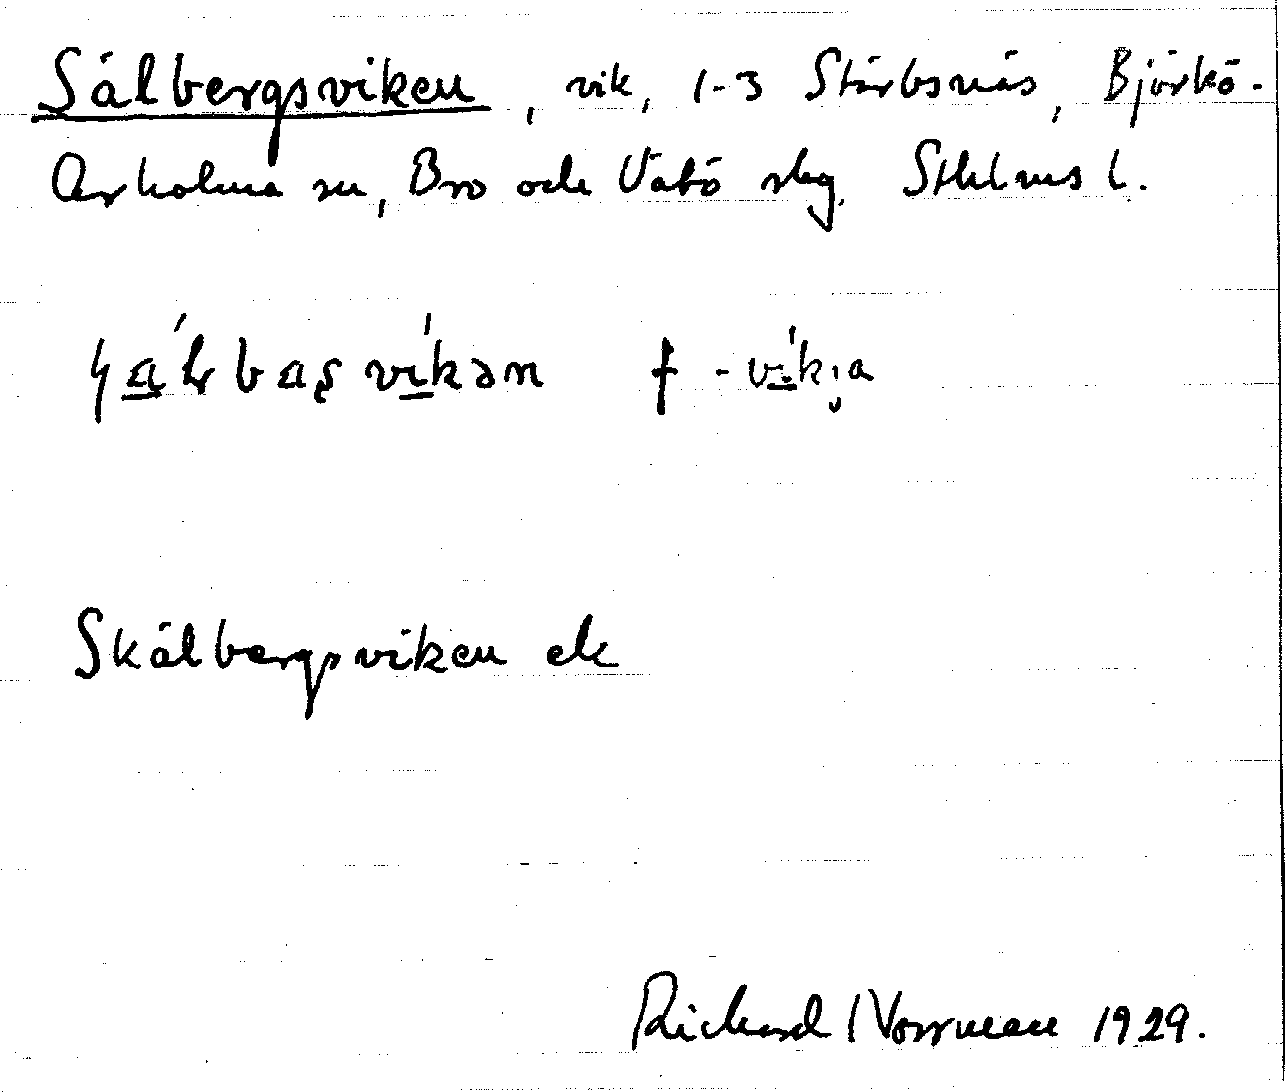 Sålbergsviken, vik, 1-3 Starbsnäs, Björkö-
Arholma sn, Bro och Vätö skg, Sthlms l.
f -víkja
Skålbergsviken ek
Richard Norrman 1929.